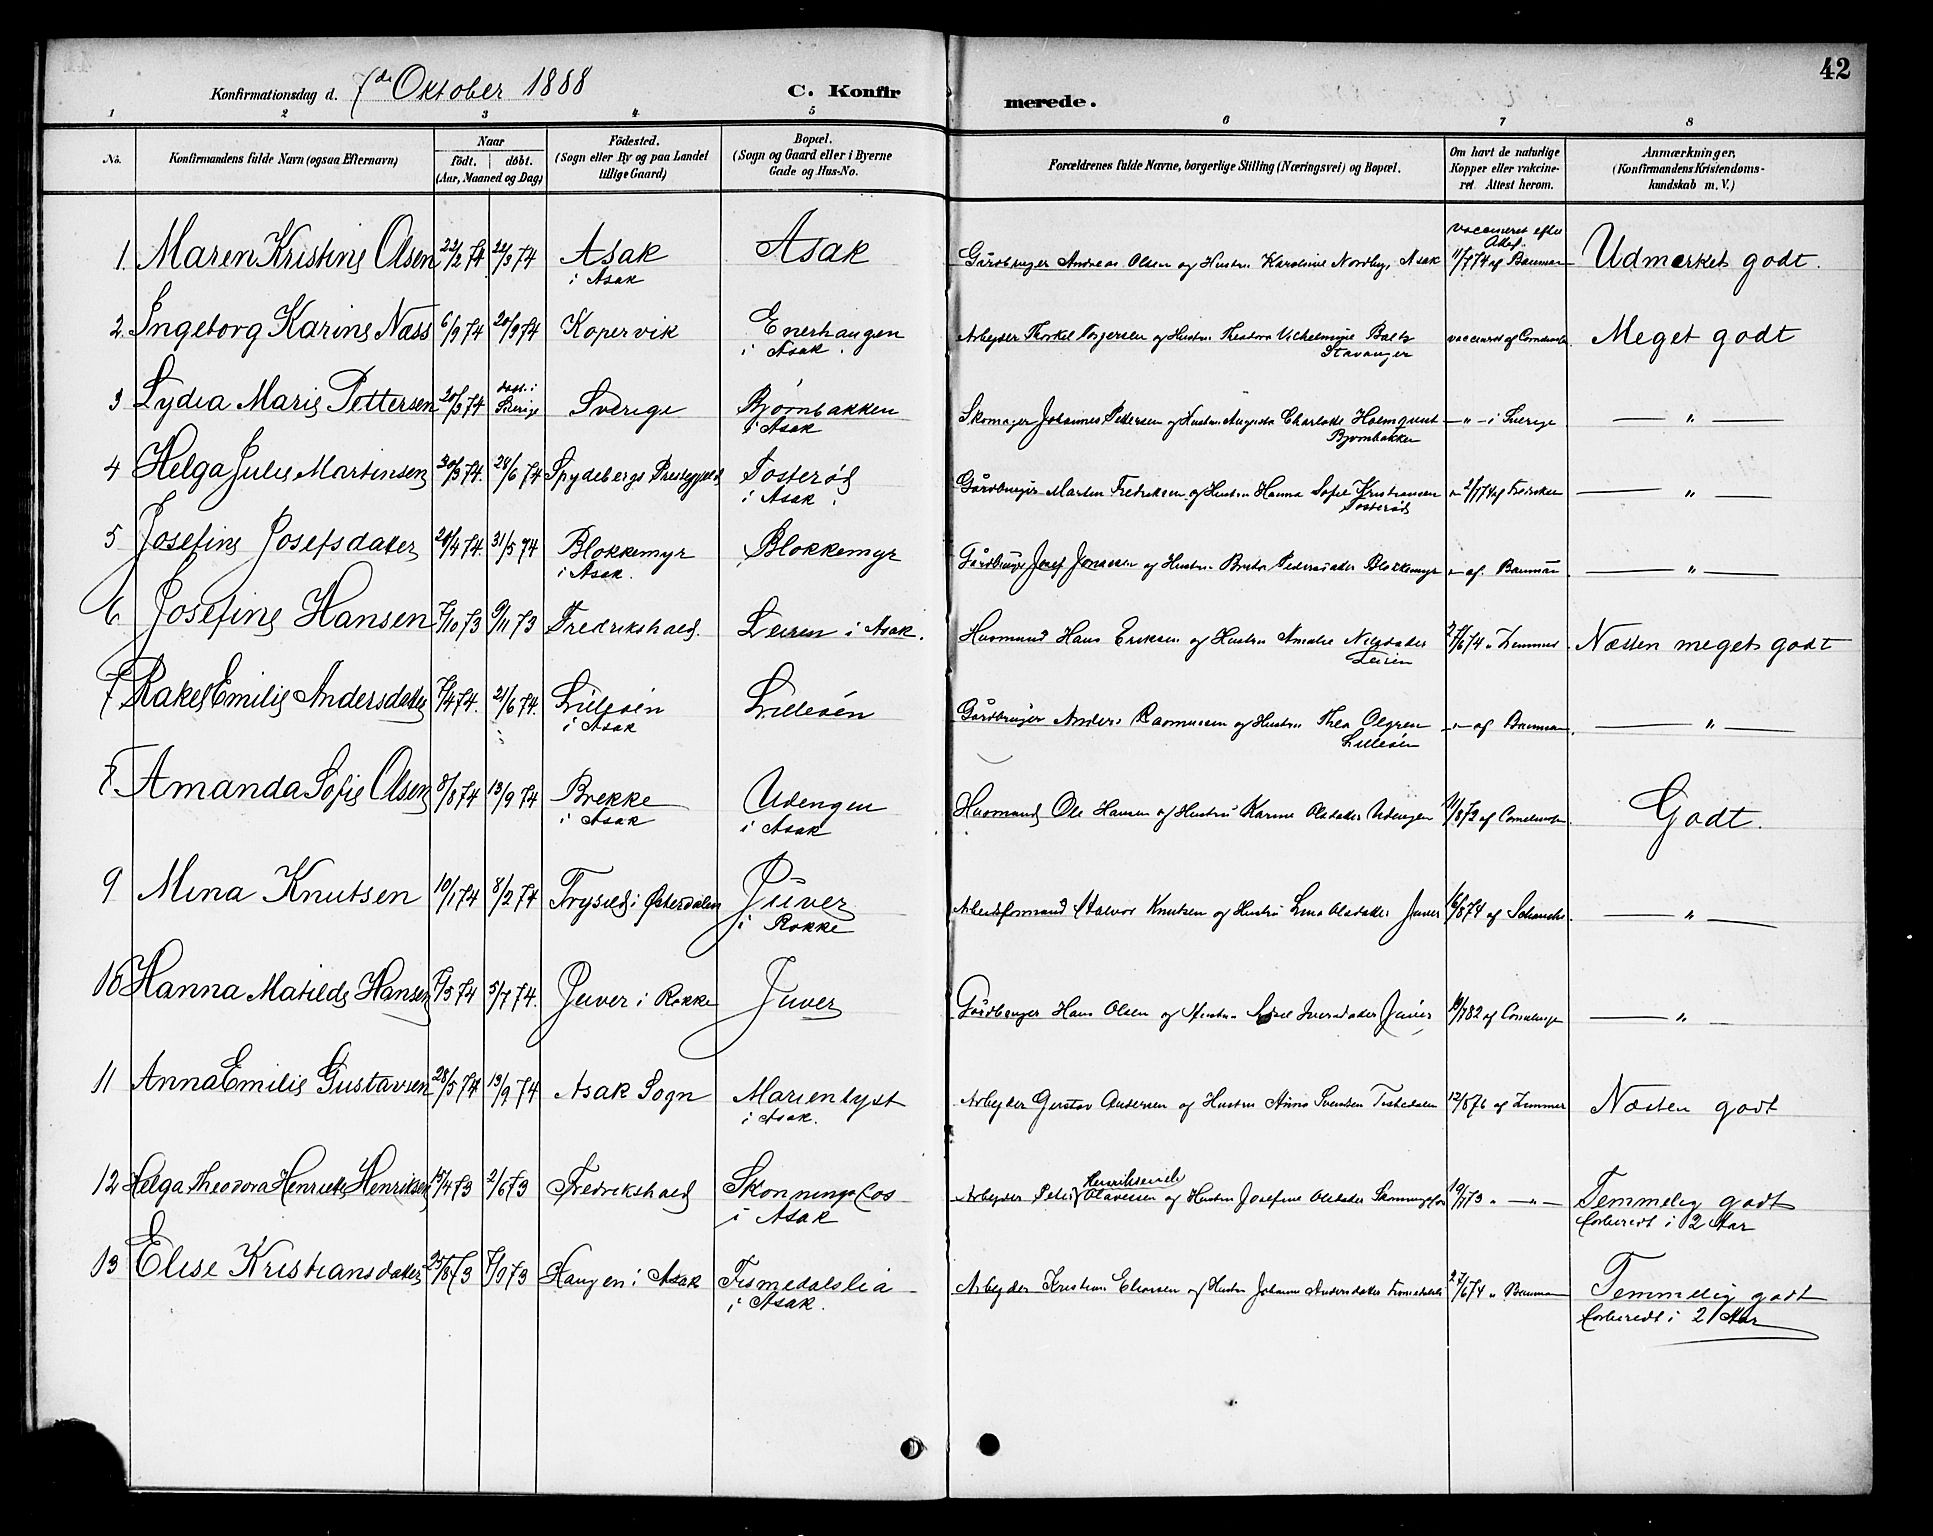 42
Konfirmationsdag d. 7de Oktober 1888 C. Konfirmerede.
1 2 3 4 5 6 7 8
No. Konfirmandens fulde Navn (ogsaa Efternavn) Naar født. døbt. (Aar, Maaned og Dag) Fødested. (Sogn eller By og paa Landet tillige Gaard) Bopæl. (Sogn og Gaard eller i Byerne Gade og Hus-No. Forældrenes fulde Navne, borgerlige Stilling (Næringsvei) og Bopæl. Om havt de naturlige Kopper eller vakcineret. Attest herom. Anmærkninger, (Konfirmandens Kristendomskundskab m. V.)
1. Maren Kristine Olsen 22/2 74 22/3 74 Asak i Asak Asak Gårdbruger Andreas Olsen og Hustru Karoline Nordby Asak vaccineret efter Att. 11/7 74 af Bauman Udmærket godt.
2. Ingeborg Karine Næss 6/9 74 20/9 74 Kopervik Enerhaugen i Asak. Arbeider Thorkel Torjersen og Hustru Theodora Vilhelmine Baltz Stavanger vaccineret af Meget godt
3 Lydia Marie Pettersen 20/3 74 døbt i Sverige Sverige Bjørnbakken i Asak Skomager Johannes Pettersen og Hustru Augusta Charlotte Holmquist Bjørnbakken — " — i Sverige — " —
4 Helga Julie Martinsen 30/3 74. 24/6 74 Spydebergs Prestegjeld Tosterød i Asak. Gårdbruger Martin Fredriksen og Hustru Hanna Sofie Kristiansen Tosterød " 2/7 74 af Fredriksen — " —
5 Josefine Josefsdatter 20/4 74. 31/5 74 Blokkemyr i Asak. Blokkemyr Gårdbruger Josef Jonassen og Hustru Berta Pedersdatter Blokkemyr " af. Bauman — " —
6 Josefine Hansen 7/10 73 9/11 73 Fredrikshald. Leiren i Asak. Husmand Hans Eriksen og Hustru Amalie Nilsdatter Leiren 27/6 74 " Zemmer Næsten meget godt
7 Rakel Emilie Andersdatter 7/4 74. 21/6 74. Lilleøen i Asak Lilleøen Gårdbruger Anders Rasmussen og Hustru Thea Olgren Lilleøen " af Bauman — " —
8. Amanda Sofie Olsen 8/8 74 13/9 74 Brekke i Asak Udengen i Asak Husmand Ole Hansen og Hustru Karine Olsdatter Udengen 11/8 79 af Godt.
9 Mina Knutsen 10/1 74 8/2 74 Trysild i Østerdalen Juver i Rokke Arbeidsformand Halvor Knutsen og Hustru Lina Olsdatter Juver 16/8 74 af — " —
10 Hanna Matilde Hansen 7/5 74 5/7 74. Juver i Rokke Juver Gårdbruger Hans Olsen og Hustru Iversdatter Juver 19/7 82 af — " —
11 Anna Emilie Gustavsen 28/5 74 13/9 74 Asak Sogn Marienlyst i Asak. Arbejder Gustav Andersen og Hustru Anna Svendsen Tistedalen 12/8 76 af Zemmer Næsten godt
12 Helga Theodora Henriette Henriksen 15/4 73 2/6 73 Fredrikshald Skonningsfos i Asak Arbejder Peter Henriksen Olavesen og Hustru Josefine Olsdatter Skonningsfos 19/7 73 " — " — Temmelig godt forberedt i 2 Aar
13 Elise Kristiansdatter 25/8 73 7/9 73 Haugen i Asak Tismedalslia i Asak. Arbejder Kristian Eliassen og Hustru Johanne Andersdatter Tismedalslia 27/6 74 " Bauman Temmelig godt forberedt i 2 Aar